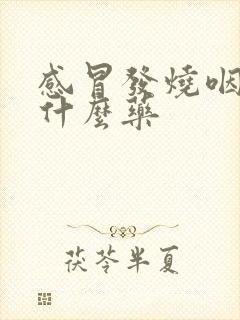 感冒發燒咽
什麼藥
茯苓半夏